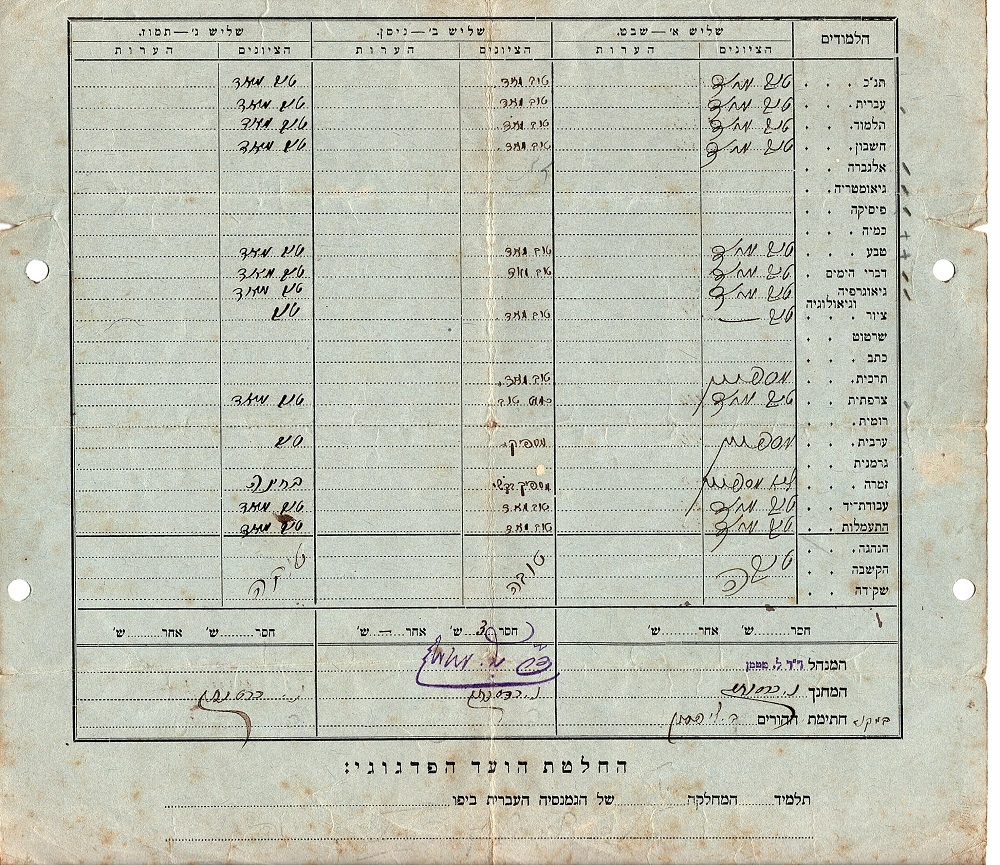 הלמודים שליש א׳—שבט. שליש ב׳—ניסן. שליש ג׳—תמוז.
הציונים הערות הציונים הערות הציונים הערות
תנ״כ . . . טוב מאד טוב מאד טוב מאד
עברית . . . טוב מאד טוב מאד טוב מאד
תלמוד . . . טוב מאד טוב מאד טוב מאד
חשבון . . . טוב מאד טוב מאד טוב מאד
אלגברה . .
גיאומטריה . .
פיסיקה . .
כמיה . . .
טבע . . . טוב מאד טוב מאד טוב מאד
דברי הימים . טוב מאד טוב מאד טוב מאד
גיאוגרפיה וגיאולוגיה טוב מאד טוב מאד
ציור . . . טוב — טוב מאד טוב
שרטוט . .
כתב . . .
תרכית . . . מספיק טוב מאד
צרפתית . . טוב מאד כמעט טוב טוב מאד
רומית . .
ערבית . . מספיק מספיק טוב
גרמנית . .
זמרה . . לא מספיק מספיק בקשי בחינה
עבודת־יד . . טוב מאד טוב מאד טוב מאד
התעמלות . . טוב מאד טוב מאד טוב מאד
הנהגה . .
הקשבה . . טובה טובה טובה
שקידה . .
חסר ש׳ אחר ש׳ חסר 3 ש׳ אחר — ש׳ חסר ש׳ אחר ש׳
המנהל ד״ר
המחנך
במקום חתימת ההורים
החלטת הועד הפדגוגי:
תלמיד המחלקה של הגמנסיה העברית ביפו